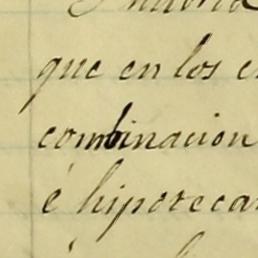 que en los
combinacion
é hipoteca